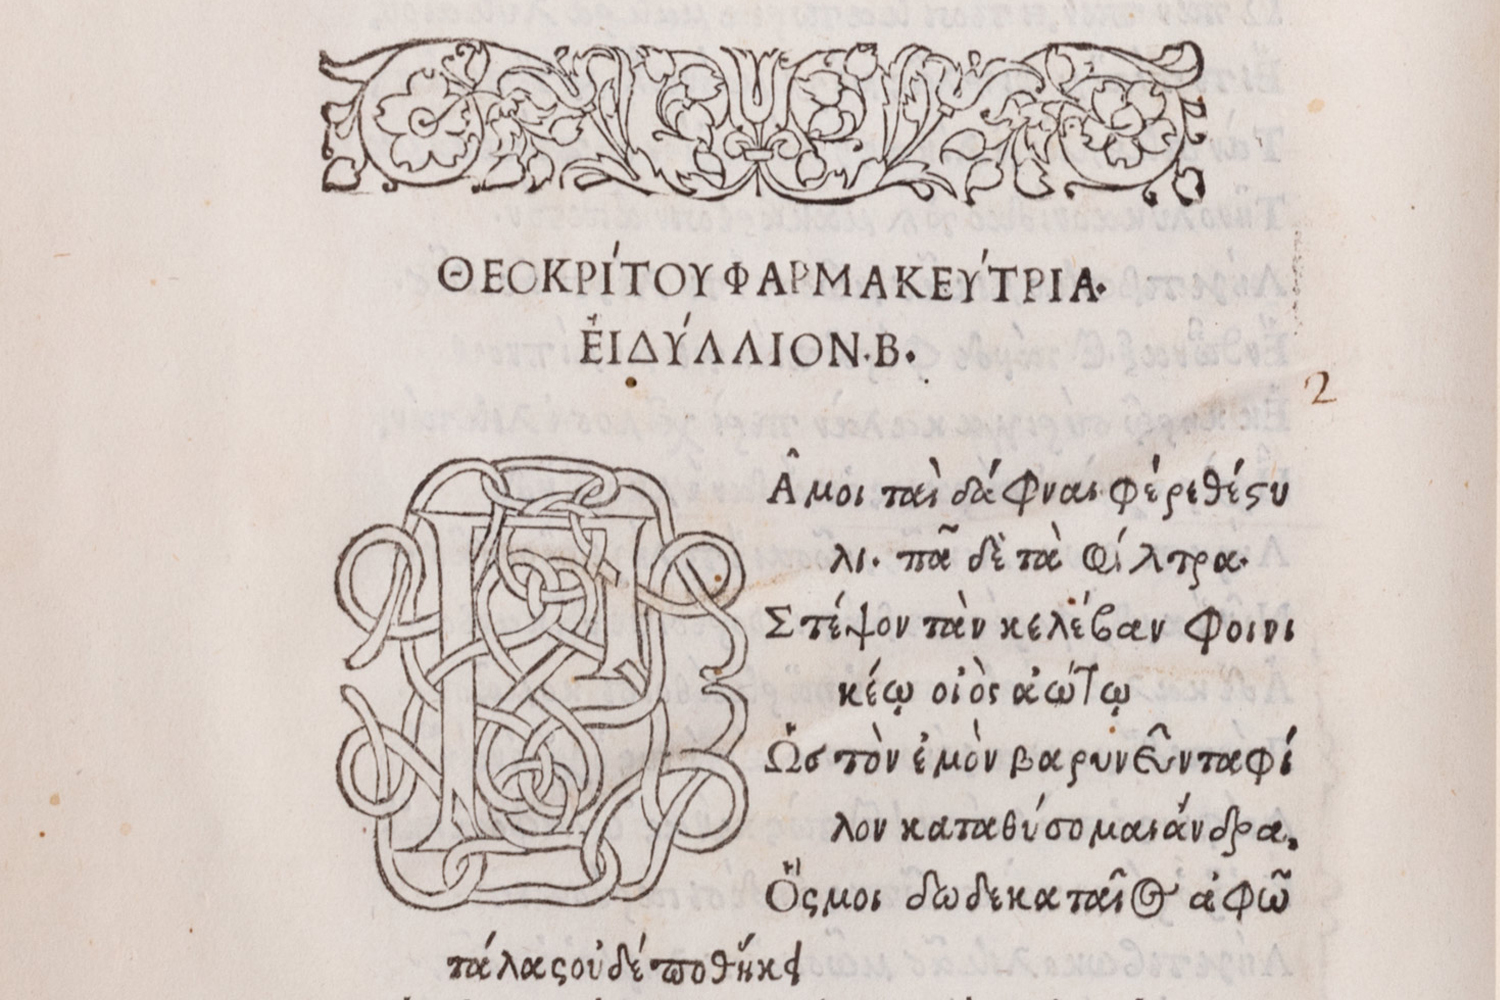 ΘΕΟΚΡΊΤΟΥ ΦΑΡΜΑΚΕΎΤΡΙΑ·
ἘΙΔΎΛΛΙΟΝ·Β·
2
Π
Α͂ μοι ταὶ δάφναι· φέρε θέςυ
λι· πᾶ δὲ τὰ φίλτρα·
Στέψον τὰν κελέβαν φοινι
κέῳ οἰὸς ἀώτῳ
Ὣς τὸν ἐμὸν βαρυνεῦντα φί
λον καταθύσομαι ἄνδρα,
Ὅς μοι δωδεκαταῖος ἀφῶ
τάλας οὐδέποθ' ἥκει